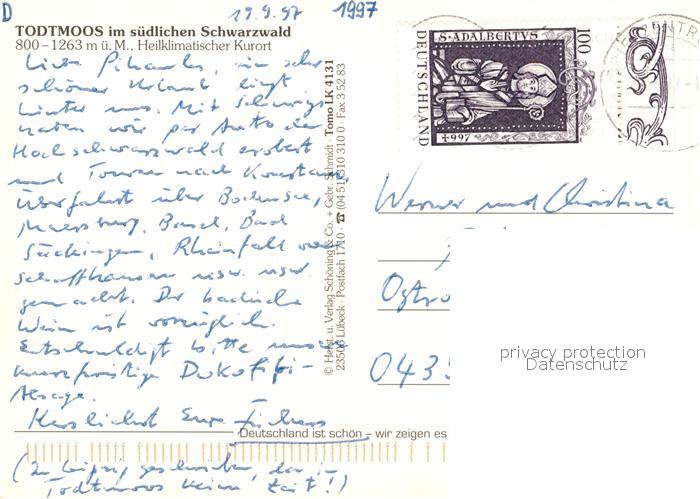 D
19.9.97 1997
TODTMOOS im südlichen Schwarzwald
800–1263 m ü. M., Heilklimatischer Kurort
Liebe ein sehr
schöner Urlaub liegt
hinter uns. Mit
haben wir per Auto den
Hochschwarzwald erobert
und Touren nach Konstanz,
Überfahrt über Bodensee,
Meersburg, Basel, Bad
Säckingen, Rheinfall von
Schaffhausen usw. usw.
gemacht. Der badische
Wein ist vorzüglich.
Entschuldigt bitte unsere
kurzfristige Dokofifi-
Absage.
Herzlichst Eure
Deutschland ist schön – wir zeigen es
(In Leipzig geschrieben, da in
Todtmoos keine Zeit!)
© Herst. u. Verlag Schöning & Co. + Gebr. Schmidt · Tomo LK 4131
23503 Lübeck · Postfach 1710 · ☎ (04 51) 310 310 0 · Fax 3 52 83
S·ADALBERTVS
100
DEUTSCHLAND
+997
Werner und Christina
043
privacy protection
Datenschutz